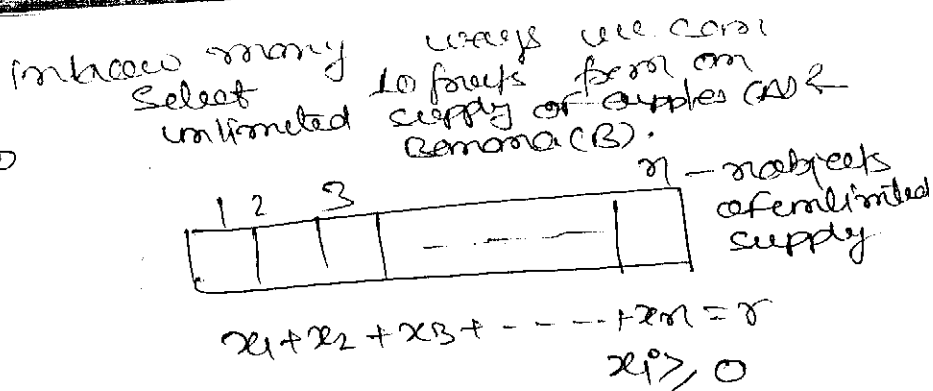 In how many ways we can
Select 10 fruits from an
unlimited supply of apples (A) &
Banana (B).
1 2 3 n - n objects
of unlimited
supply
x1 + x2 + x3 + - - - - - + xn = r
xi ≥ 0